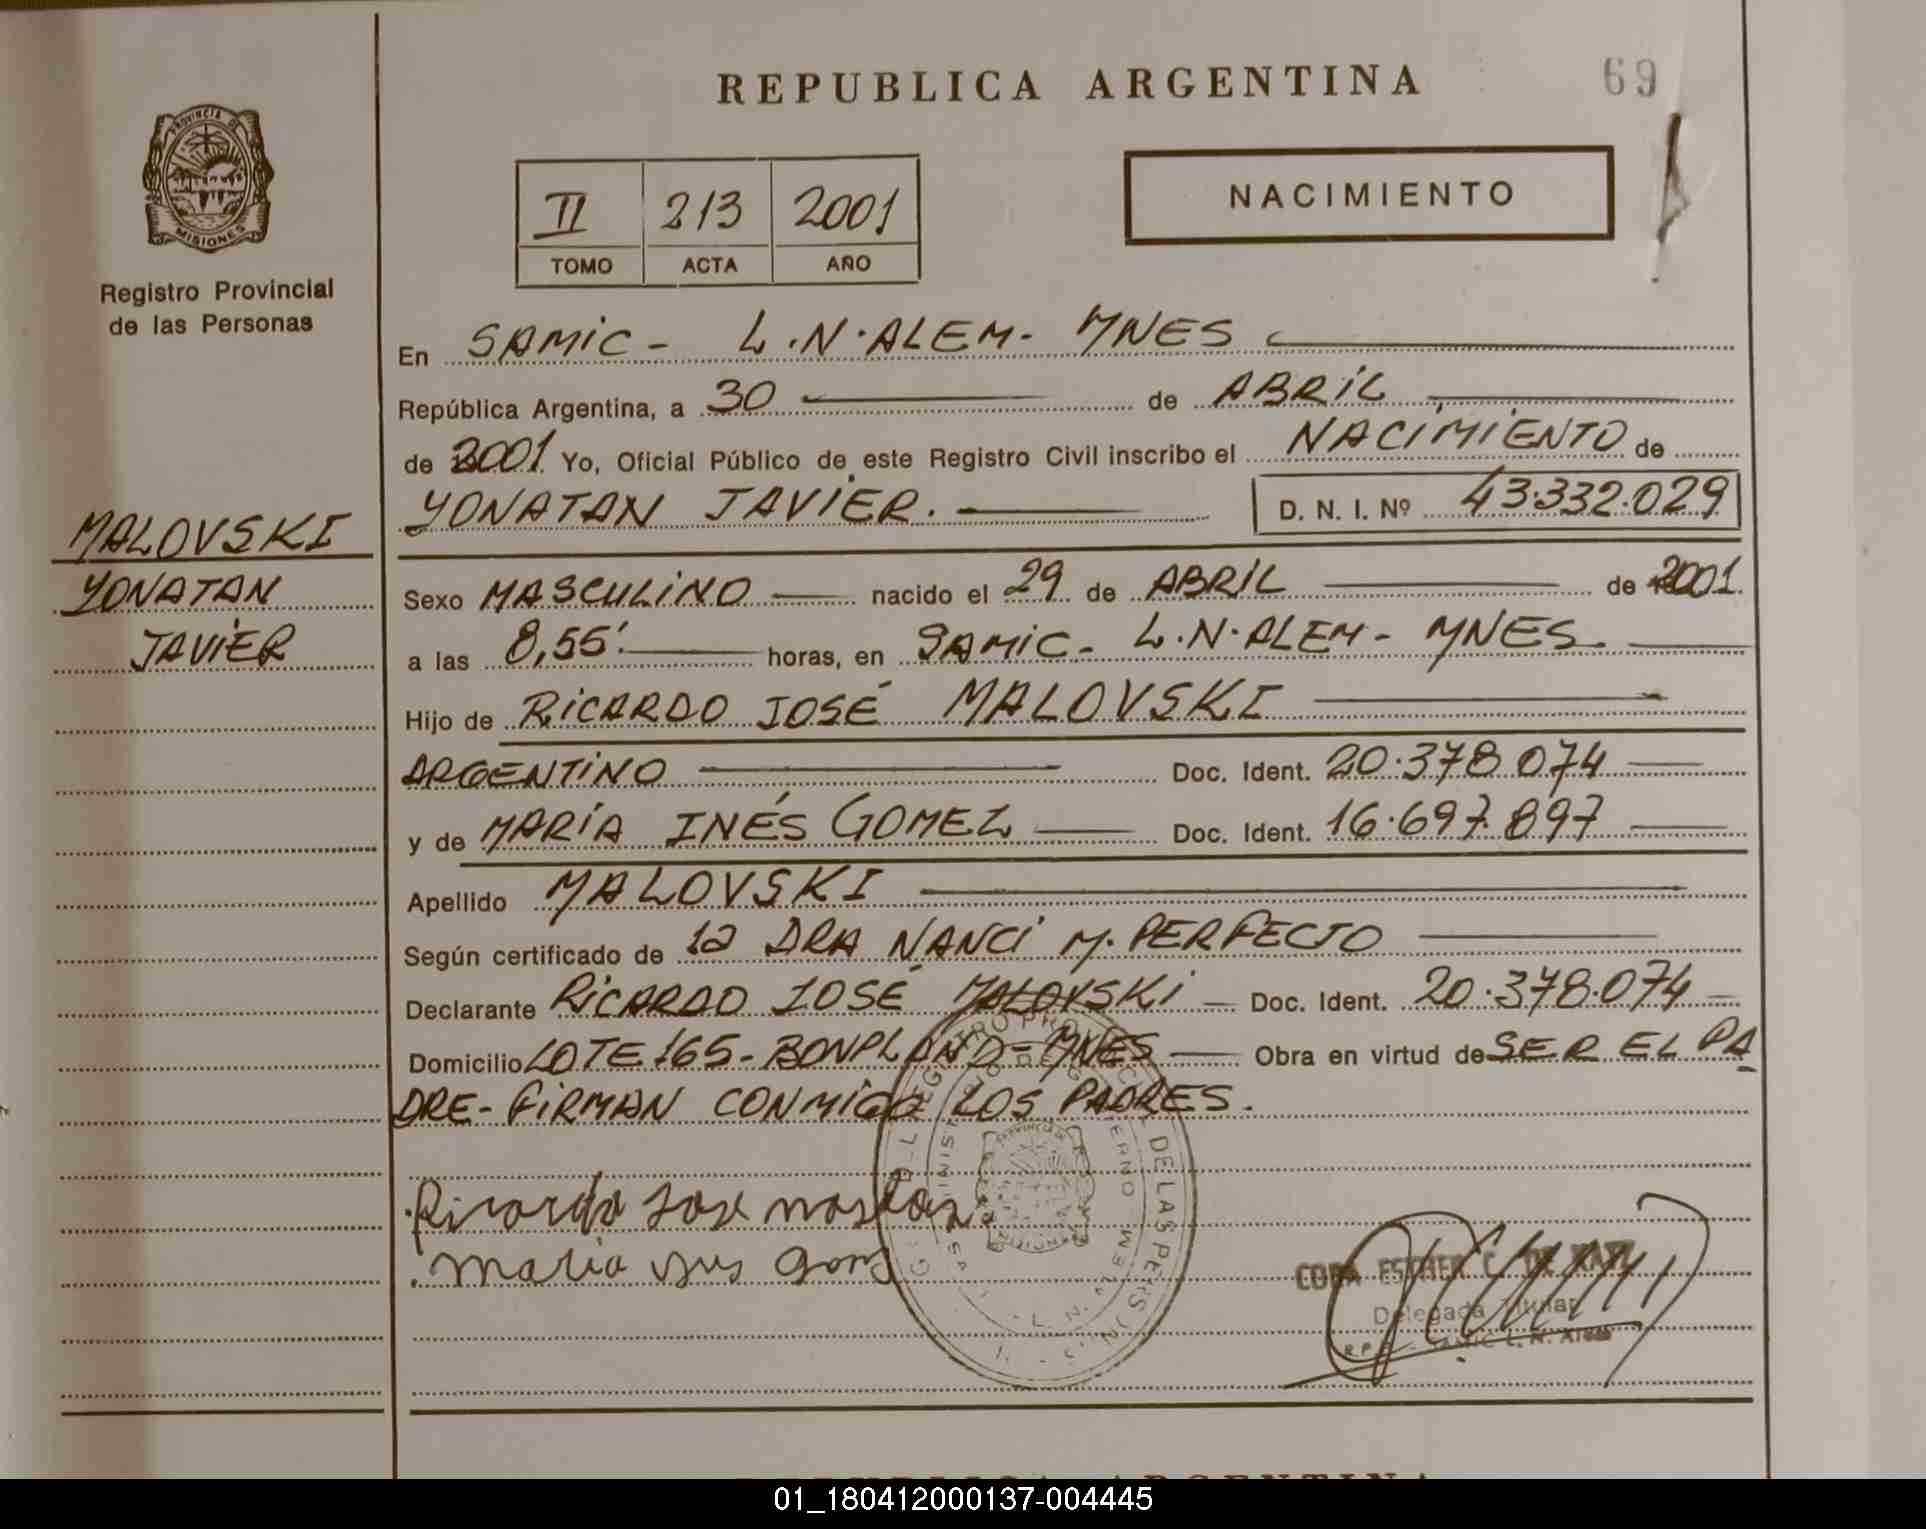 REPUBLICA ARGENTINA
69
PROVINCIA DE
MISIONES
Registro Provincial
de las Personas
II 213 2001
TOMO ACTA AÑO
NACIMIENTO
En SAMIC - L.N.ALEM - MNES
República Argentina, a 30 de ABRIL
de 2001 Yo, Oficial Público de este Registro Civil inscribo el NACIMIENTO de
YONATAN JAVIER. D. N. I. Nº 43.332.029
MALOVSKI
YONATAN
JAVIER
Sexo MASCULINO nacido el 29 de ABRIL de 2001
a las 8,55' horas, en SAMIC - L.N.ALEM - MNES
Hijo de RICARDO JOSÉ MALOVSKI
ARGENTINO Doc. Ident. 20.378.074
y de MARÍA INÉS GOMEZ Doc. Ident. 16.697.897
Apellido MALOVSKI
Según certificado de la DRA NANCI M. PERFECTO
Declarante RICARDO JOSÉ MALOVSKI Doc. Ident. 20.378.074
Domicilio LOTE 165 - BONPLAND - MNES Obra en virtud de SER EL PA
DRE - FIRMAN CONMIGO LOS PADRES.
Ricardo Jose
Maria
CORA ESTHER C. DE
Delegada Titular
REPUBLICA ARGENTINA
01_180412000137-004445